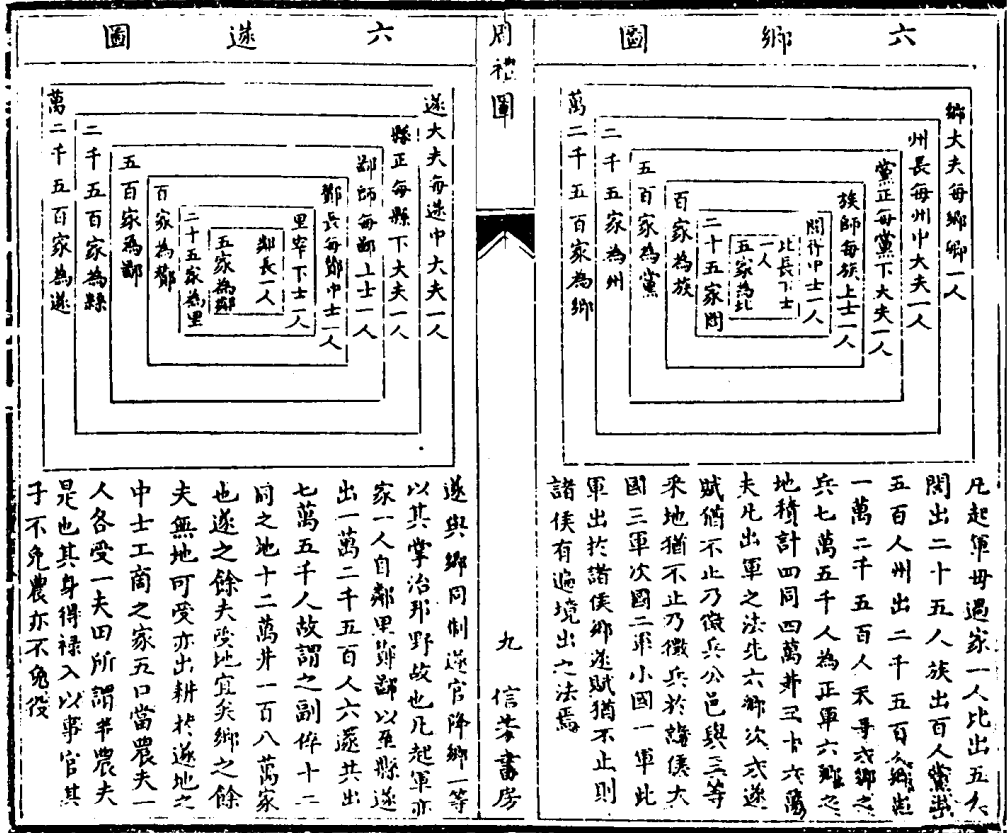 六鄉圖
鄉大夫每鄉卿一人
州長每州中大夫一人
黨正每黨下大夫一人
族師每族上士一人
閭胥中士一人
比長下士
一人
五家為比
二十五家閭
百家為族
五百家為黨
二千五家為州
萬二千五百家為鄉
凡起軍毋過家一人比出五人
閭出二十五人族出百人黨出
五百人州出二千五百人鄉出
一萬二千五百人天子六鄉之
兵七萬五千人為正軍六鄉之
地積計四同四萬井三十六萬
夫凡出軍之法先六鄉次六遂
賦猶不止乃徵兵公邑與三等
采地猶不止乃徵兵於諸侯大
國三軍次國二軍小國一軍此
軍出於諸侯鄉遂賦猶不止則
諸侯有遍境出之法焉
周禮圖
九
信芳書房
六遂圖
遂大夫每遂中大夫一人
縣正每縣下大夫一人
鄙師每鄙上士一人
酇長每酇中士一人
里宰下士一人
鄰長一人
五家為鄰
二十五家為里
百家為酇
五百家為鄙
二千五百家為縣
萬二千五百家為遂
遂與鄉同制遂官降鄉一等
以其掌治邦野故也凡起軍亦
家一人自鄰里酇鄙以至縣遂
出一萬二千五百人六遂共出
七萬五千人故謂之副倅十二
同之地十二萬井一百八萬家
也遂之餘夫受地宜矣鄉之餘
夫無地可受亦出耕於遂地之
中士工商之家五口當農夫一
人各受一夫田所謂半農夫
是也其身得祿入以事官其
子不免農亦不免役